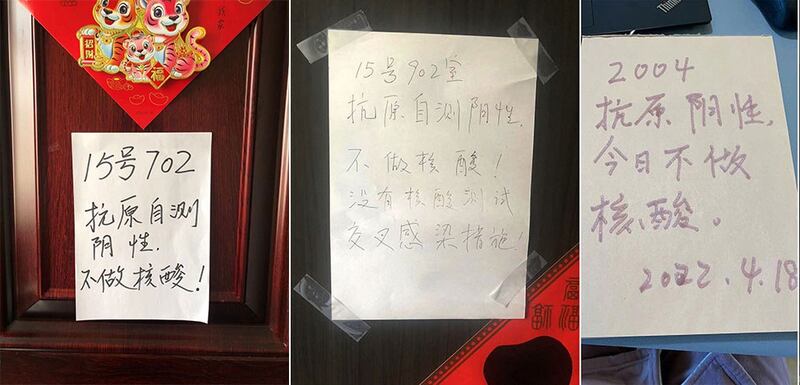 招财
福
15号702
抗原自测
阴性.
不做核酸!
15号902室
抗原自测阴性.
不做核酸!
没有核酸测试
交叉感染措施!
福
福
2004
抗原阴性,
今日不做
核酸。
2022.4.18